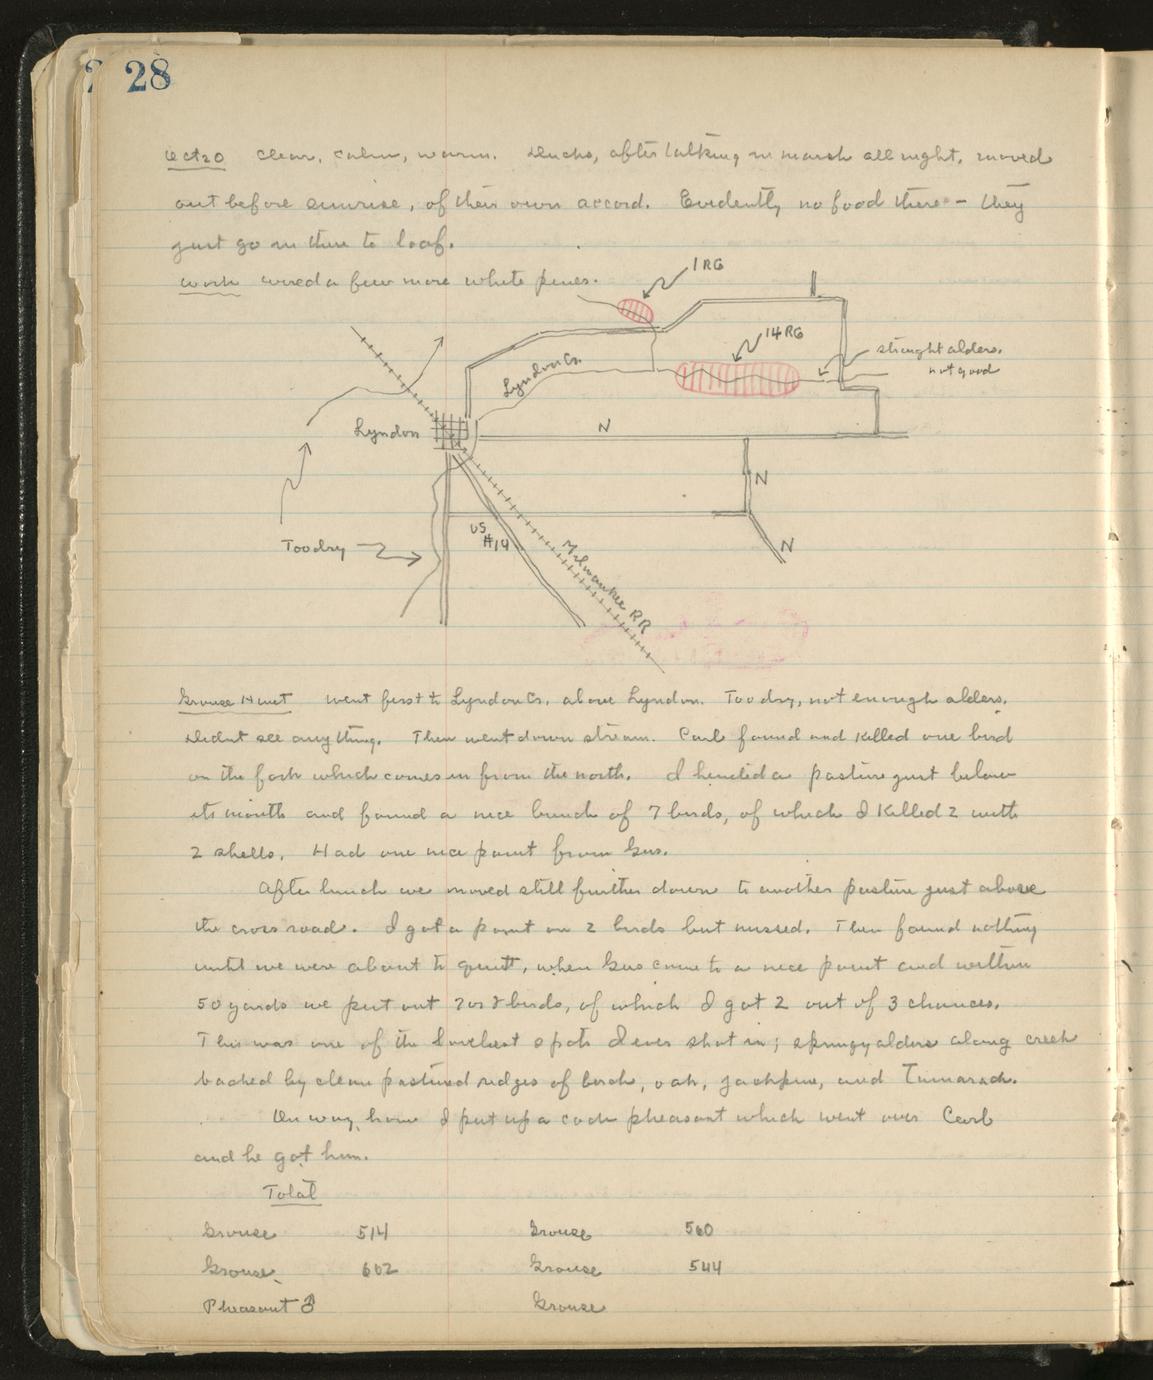 28
Oct 20 Clear, calm, warm. Ducks, after talking in marsh all night, moved
out before sunrise, of their own accord. Evidently no food there - they
just go in there to loaf.
Work wired a few more white pines.
1 RG
14 RG
straight alders,
not good
Lyndon Cr.
Lyndon
N
N
N
US
#14
Too dry
Milwaukee RR
Grouse Hunt Went first to Lyndon Cr. above Lyndon. Too dry, not enough alders.
Didnt see anything. Then went down stream. Carl found and killed one bird
on the fork which comes in from the north. I hunted a pasture just below
its mouth and found a nice bunch of 7 birds, of which I killed 2 with
2 shells. Had one nice point from Gus.
After lunch we moved still further down to another pasture just above
the cross road. I got a point on 2 birds but missed. Then found nothing
until we were about to quit, when Gus came to a nice point and within
50 yards we put out 7 or 8 birds, of which I got 2 out of 3 chances.
This was one of the loveliest spots I ever shot in; springy alders along creek
backed by clean pastured ridges of birch, oak, jackpine, and Tamarack.
On way home I put up a cock pheasant which went over Carl
and he got him.
Total
Grouse 514 Grouse 560
Grouse 602 Grouse 544
Pheasant ♂ Grouse